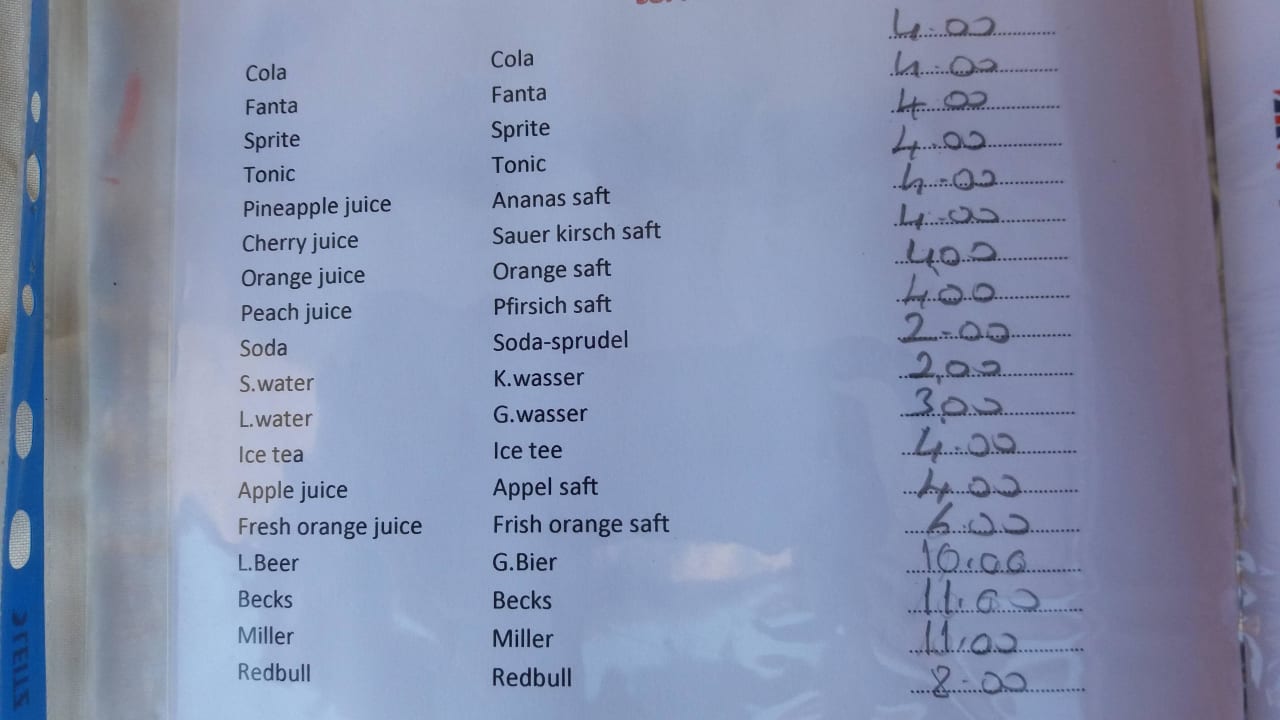 Cola Cola 4.00
Fanta Fanta 4.00
Sprite Sprite 4.00
Tonic Tonic 4.00
Pineapple juice Ananas saft 4-00
Cherry juice Sauer kirsch saft 4-00
Orange juice Orange saft 4,00
Peach juice Pfirsich saft 4.00
Soda Soda-sprudel 2-00
S.water K.wasser 2,00
L.water G.wasser 3,00
Ice tea Ice tee 4.00
Apple juice Appel saft 4.00
Fresh orange juice Frish orange saft 6.00
L.Beer G.Bier 10.00
Becks Becks 11.00
Miller Miller 11.00
Redbull Redbull 8-00